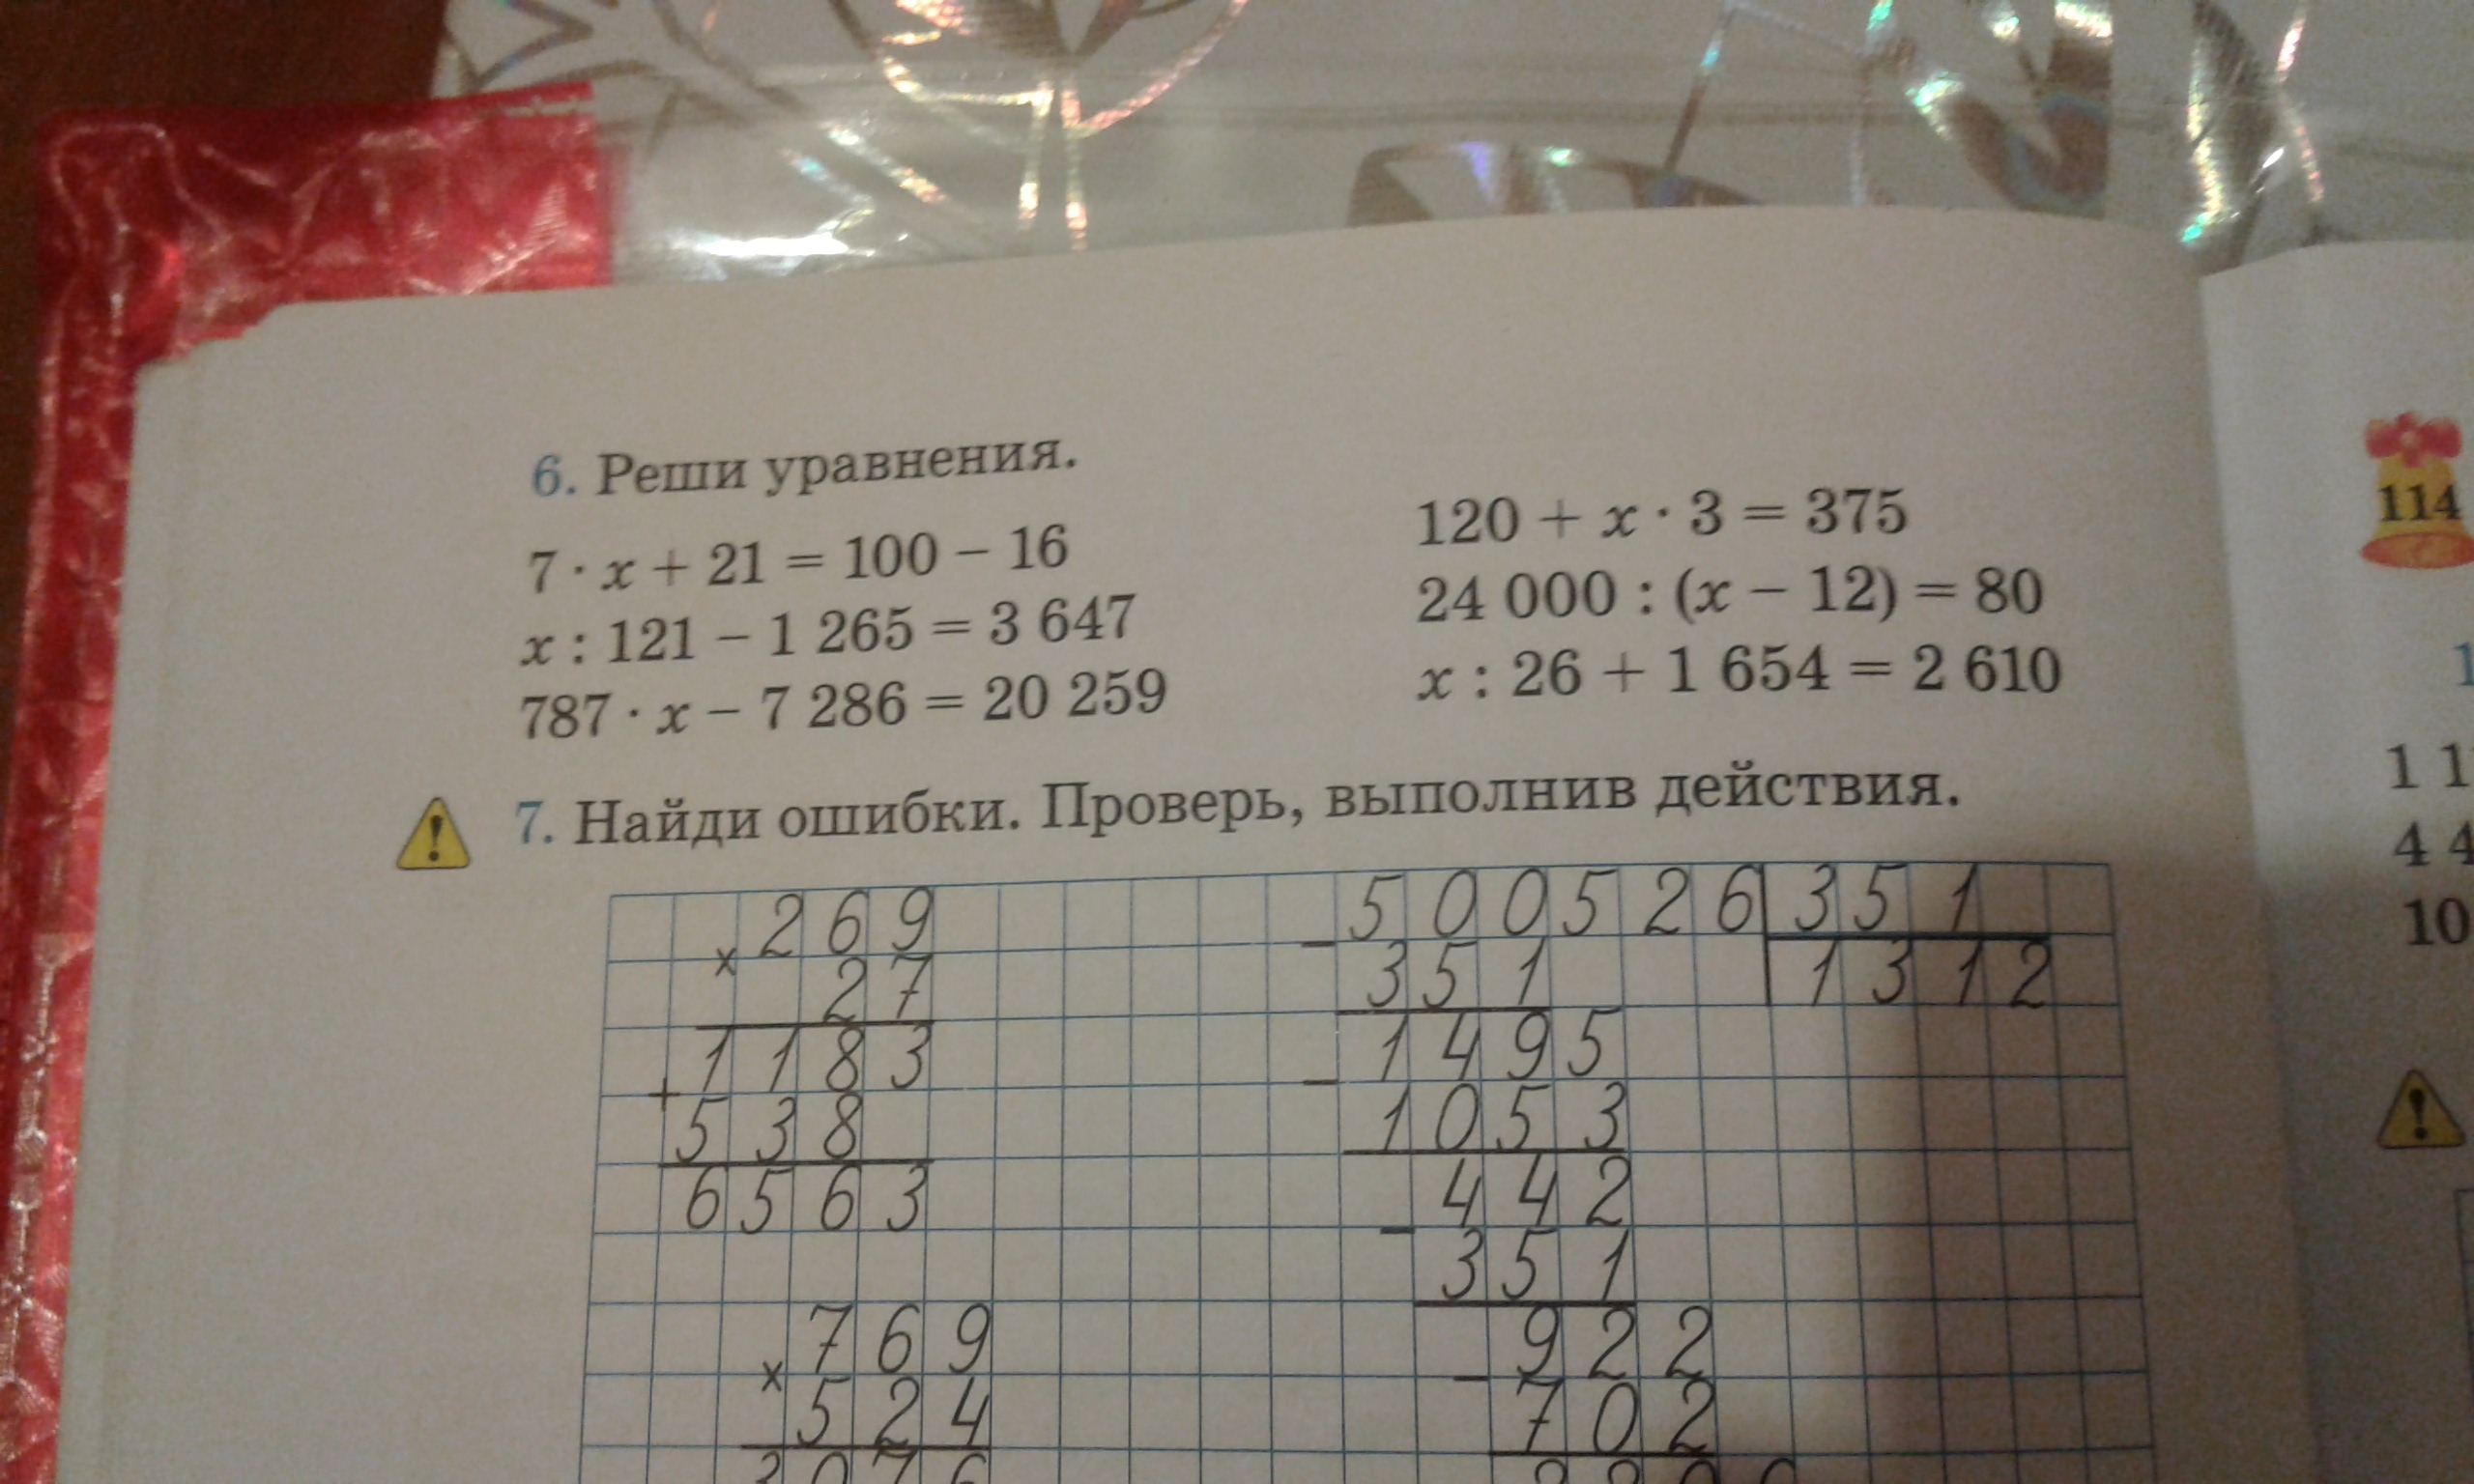 6. Реши уравнения.
7 · x + 21 = 100 − 16
x : 121 − 1 265 = 3 647
787 · x − 7 286 = 20 259
120 + x · 3 = 375
24 000 : (x − 12) = 80
x : 26 + 1 654 = 2 610
7. Найди ошибки. Проверь, выполнив действия.
269
×
27
1183
+
538
6563
769
×
524
3076
−500526 351
351 1312
−1495
1053
−442
351
−922
702
114
1
1 1
4 4
10